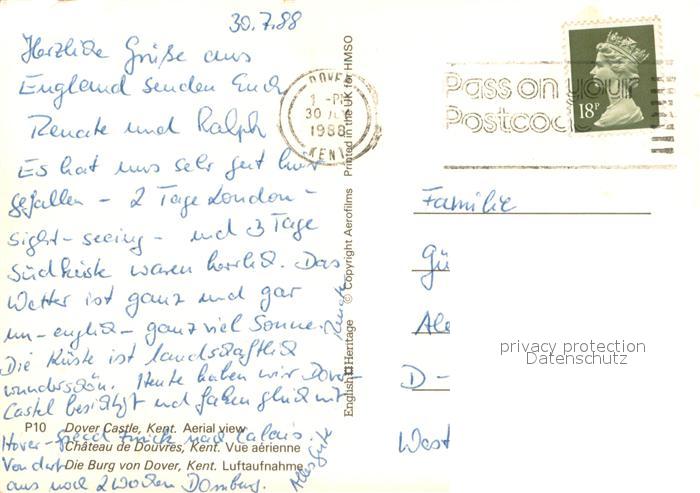 30.7.88
Herzliche Grüße aus
England senden Euch
Renate und Ralph
Es hat uns sehr gut hier
gefallen - 2 Tage London -
sight-seeing - und 3 Tage
Südküste waren herrlich. Das
Wetter ist ganz und gar
un-englich - ganz viel Sonne.
Die Küste ist landschaftlich
wunderschön. Heute haben wir Dover-
Castel besichtigt und fahren gleich mit
Hover-speed zurück nach Calais.
Von dort
aus noch 2 Wochen Domburg.
Alles Gute
Renate
P10 Dover Castle, Kent. Aerial view
Château de Douvres, Kent. Vue aérienne
Die Burg von Dover, Kent. Luftaufnahme
English Heritage © Copyright Aerofilms Printed in the UK for HMSO
DOVER
1 -PM
30
1988
KENT
Pass on your
Postcode
18P
Familie
Gü
D-
West
privacy protection
Datenschutz